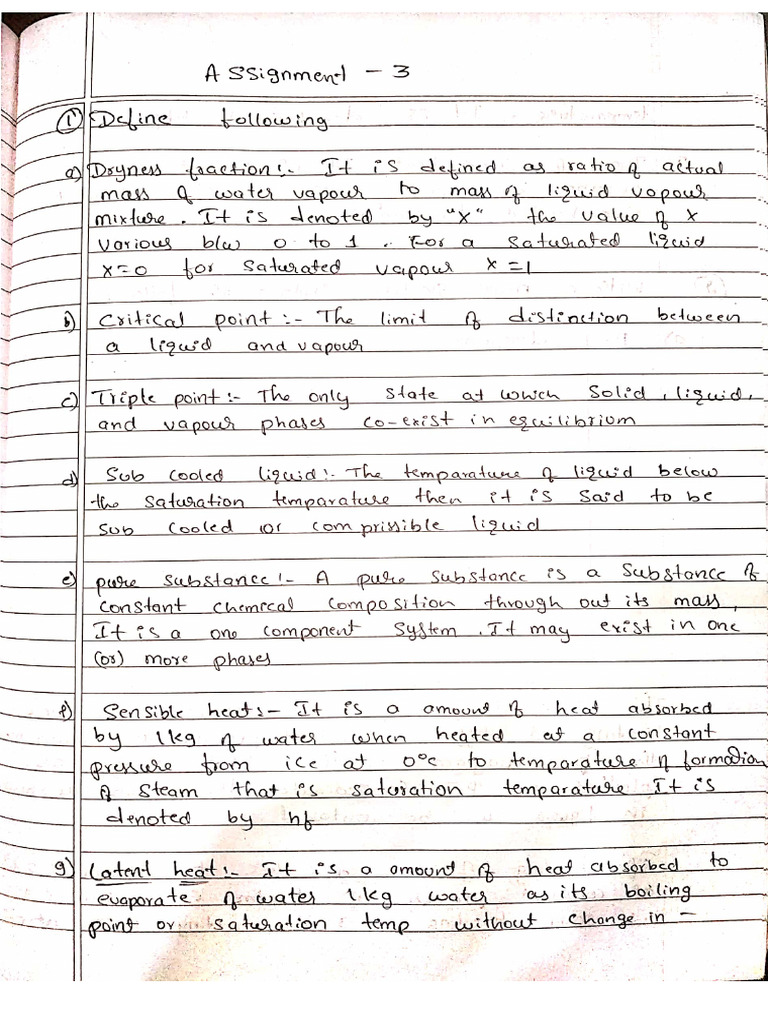 Assignment - 3
① Define following
a) Dryness fraction:- It is defined as ratio of actual
mass of water vapour to mass of liquid vapour
mixture. It is denoted by "x" the value of x
various b/w 0 to 1. For a saturated liquid
x=0 for saturated vapour x=1
b) Critical point :- The limit of distinction between
a liquid and vapour
c) Triple point:- The only state at which Solid, liquid,
and vapour phases co-exist in equilibrium
d) Sub cooled liquid:- The temparature of liquid below
the saturation temparature then it is said to be
sub cooled or comprissible liquid
e) pure substance:- A pure substance is a substance of
constant chemical composition through out its mass,
It is a one component system. It may exist in one
(or) more phases
f) Sensible heat:- It is a amount of heat absorbed
by 1kg of water when heated at a constant
pressure from ice at 0°c to temparature of formation
of steam that is saturation temparature It is
denoted by hf
g) Latent heat:- It is a amount of heat absorbed to
evaporate of water 1kg water as its boiling
point or saturation temp without change in -